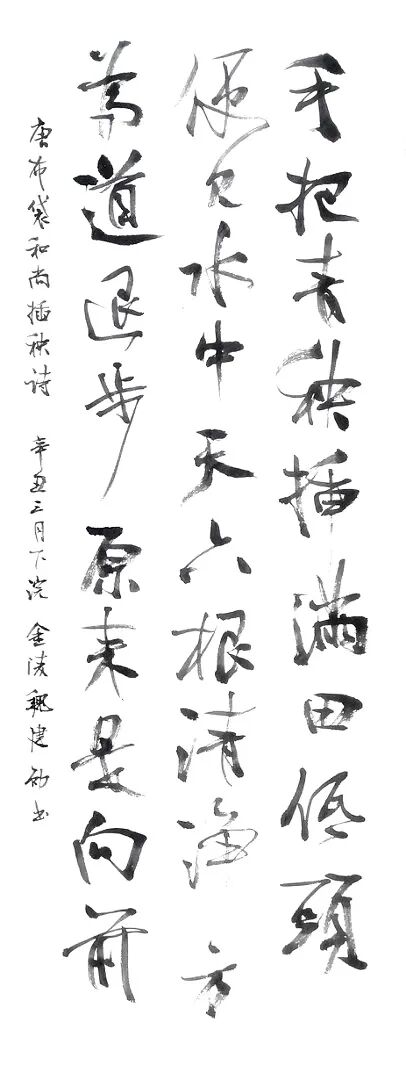 手把青秧插滿田低頭
便见水中天六根清淨方
為道退步原来是向前
唐布袋和尚插秧诗 辛丑三月下浣 金陵魏书